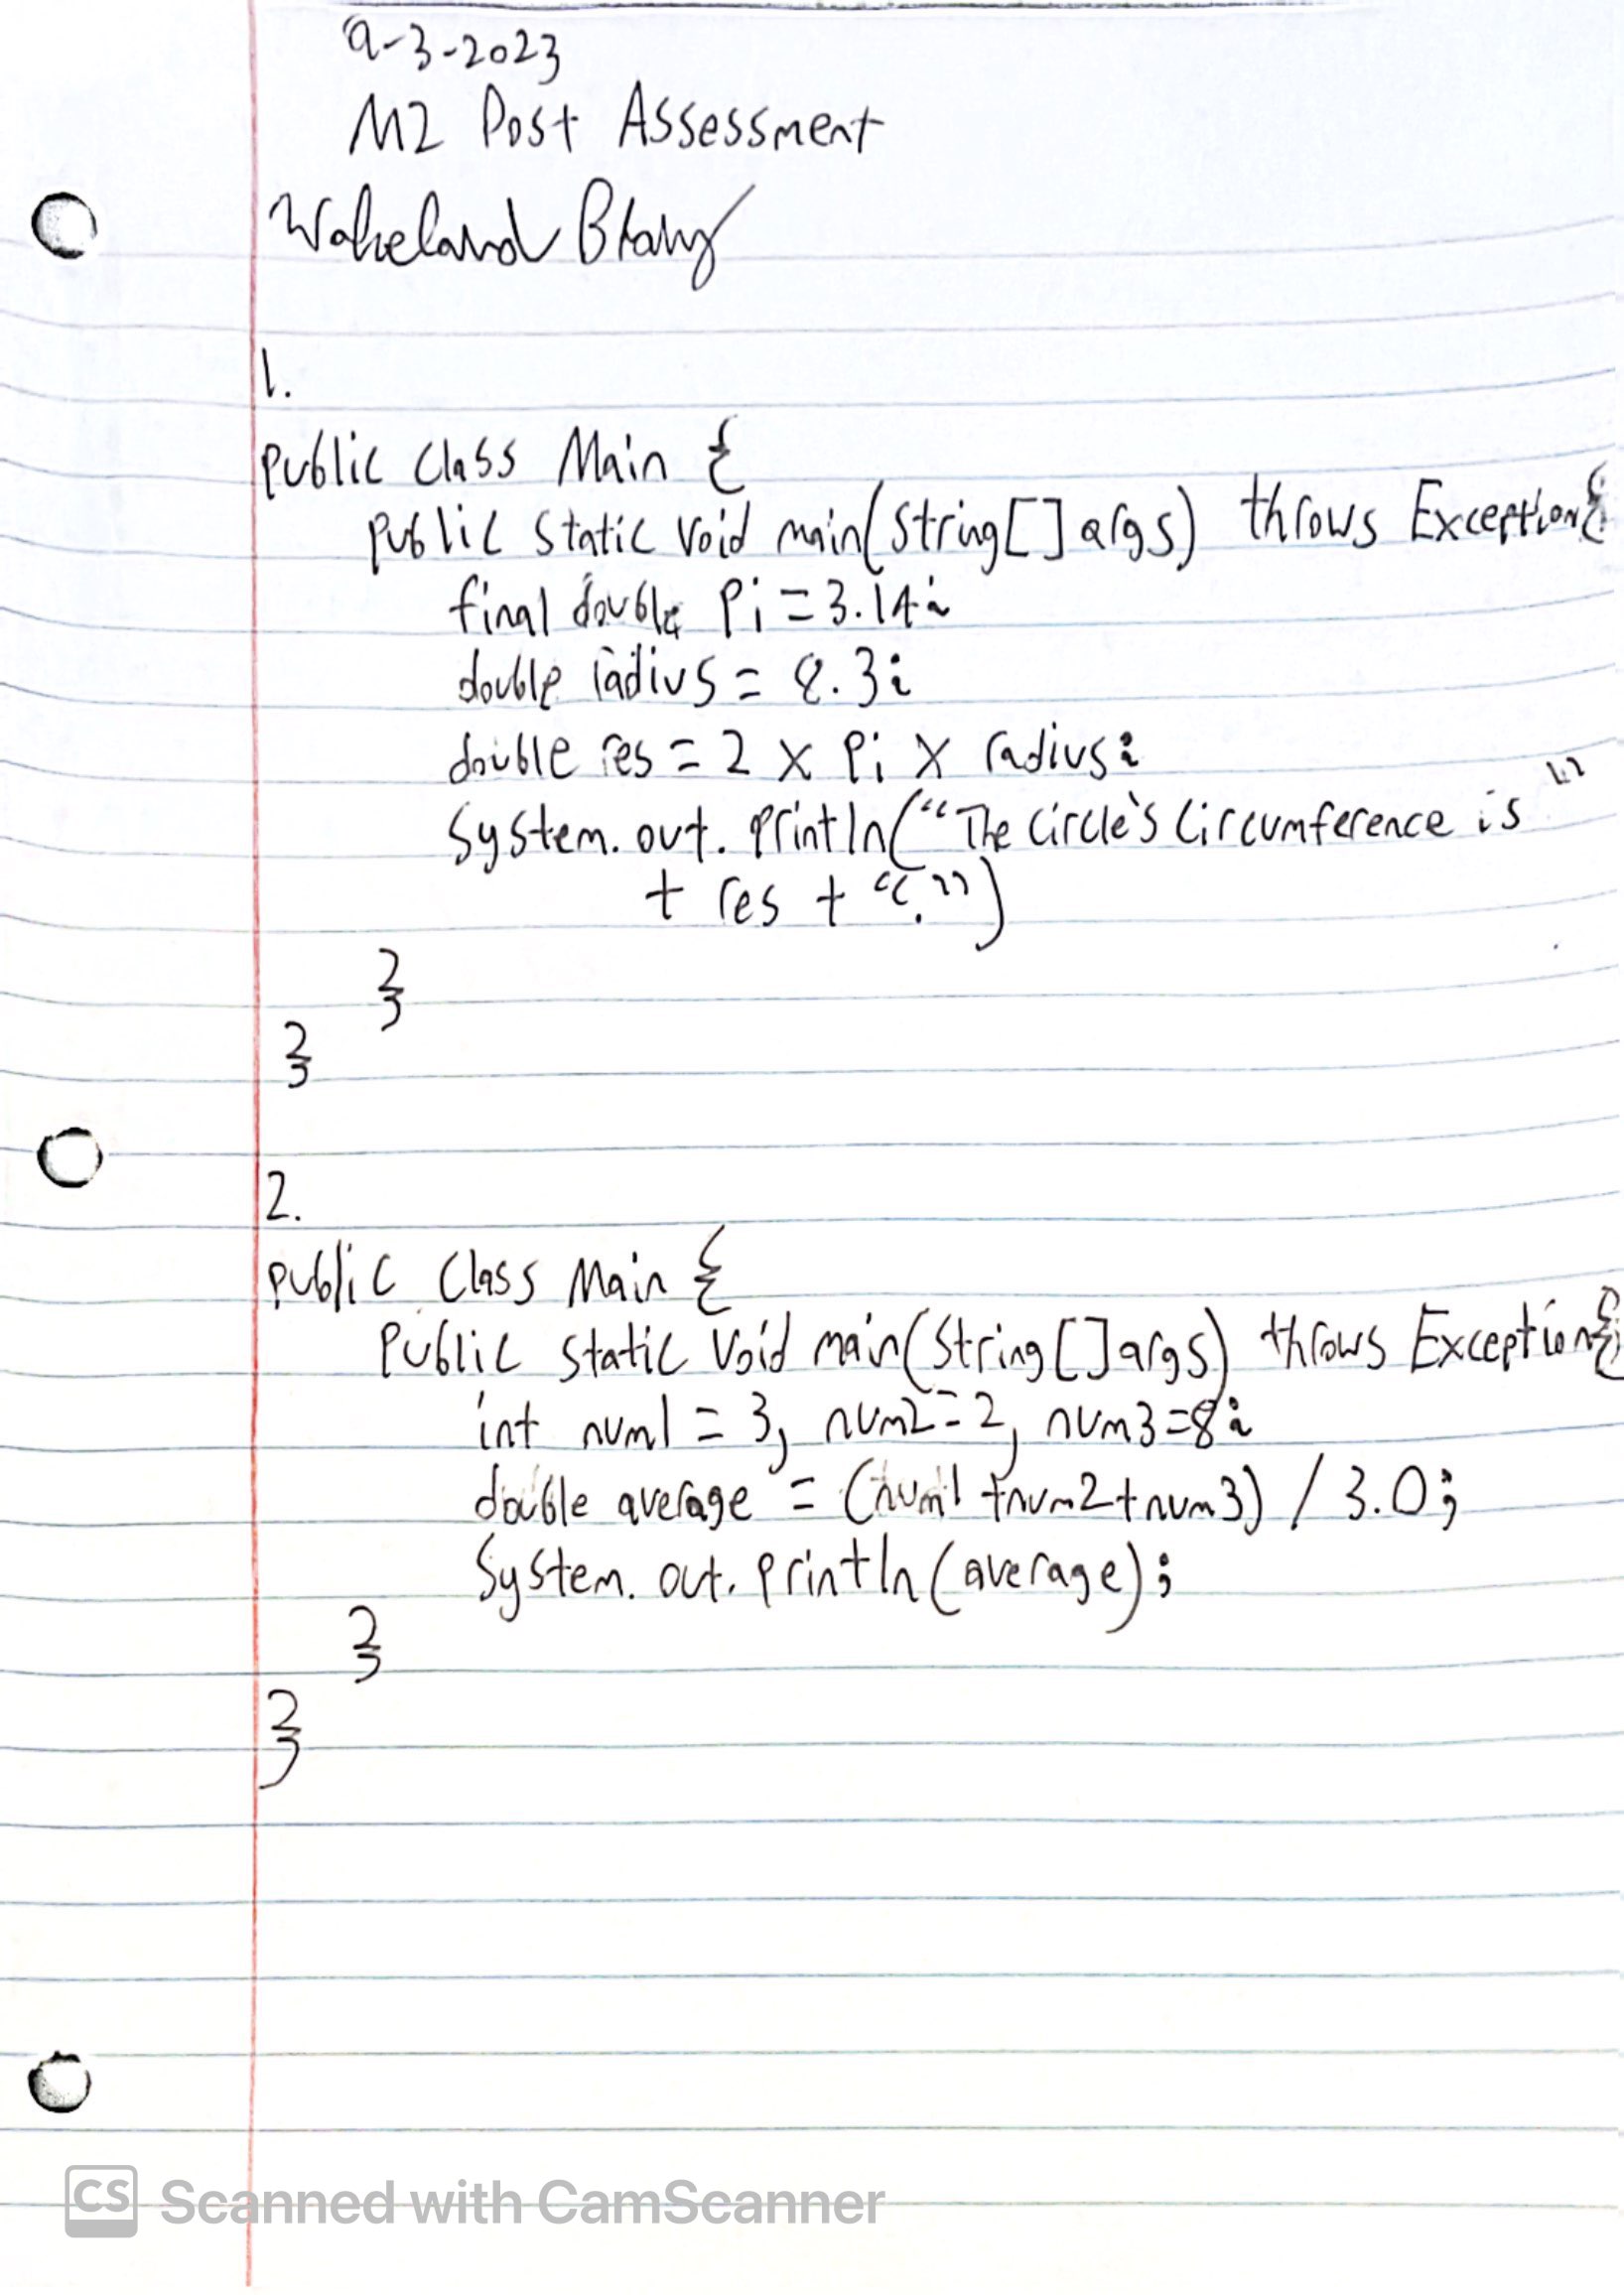 9-3-2023
M2 Post Assessment
Wakeland
1.
public class Main {
public static void main(String[] args) throws Exception{
final double Pi = 3.14;
double radius = 8.3;
double res = 2 x Pi x radius;
System.out.println("The circle's circumference is "
+ res + ".")
}
}
2.
public class Main {
public static void main(String[] args) throws Exception{
int num1 = 3, num2=2, num3=8;
double average = (num1 +num2+num3) / 3.0;
System.out.println(average);
}
}
CS Scanned with CamScanner